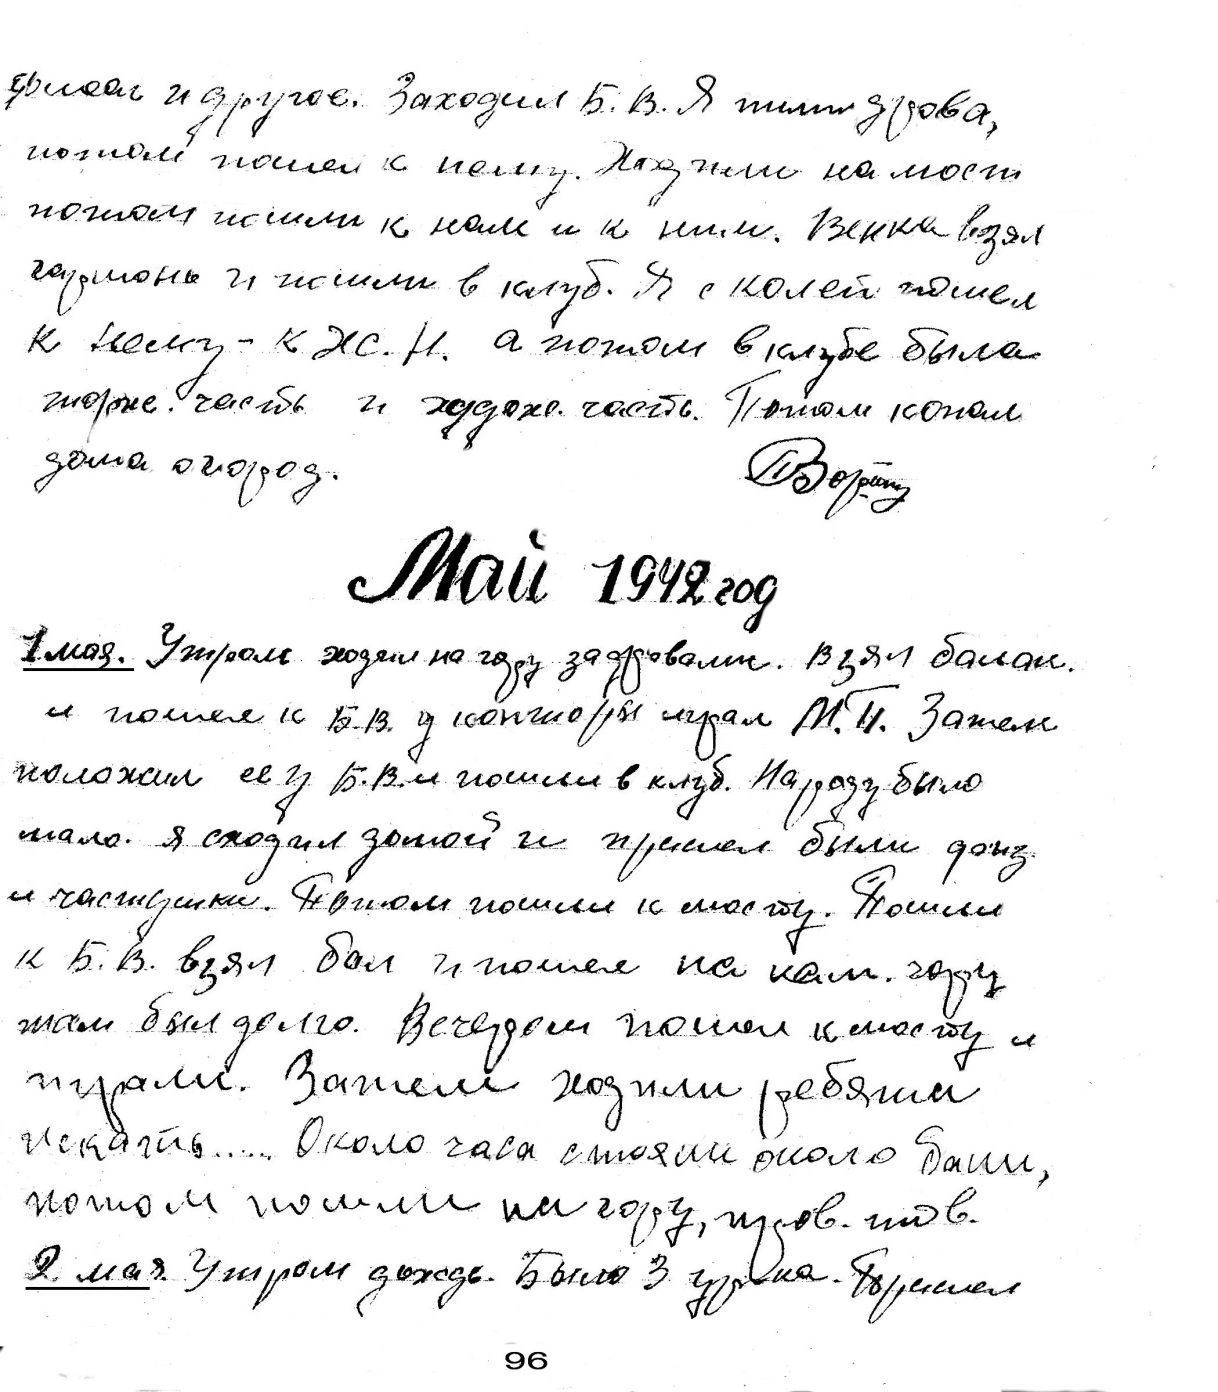 и другое. Заходил Б. В. Я пилил дрова,
потом пошел к нему. Ходили на мост
потом пошли к нам и к ним. Венка взял
гармонь и пошли в клуб. Я с Колей пошел
к нему - к Ж. Н. а потом в клубе была
торже. часть и худож. часть. Потом копал
дома огород.
Май 1942 год
1 мая. Утром ходил на гору за дровами. Взял балал.
и пошел к Б.В. у конторы играл М.П. Затем
положил ее у Б.В. и пошли в клуб. Народу было
мало. Я сходил домой и пришел были физ.
и частушки. Потом пошли к мосту. Пошли
к Б. В. взял бал и пошел на кам. гору
там был долго. Вечером пошел к мосту и
играли. Затем ходили ребята
искать..... Около часа стояли около бани,
потом пошли на гору, пров.
2 мая Утром дождь. Было 3 урока. Пришел
96